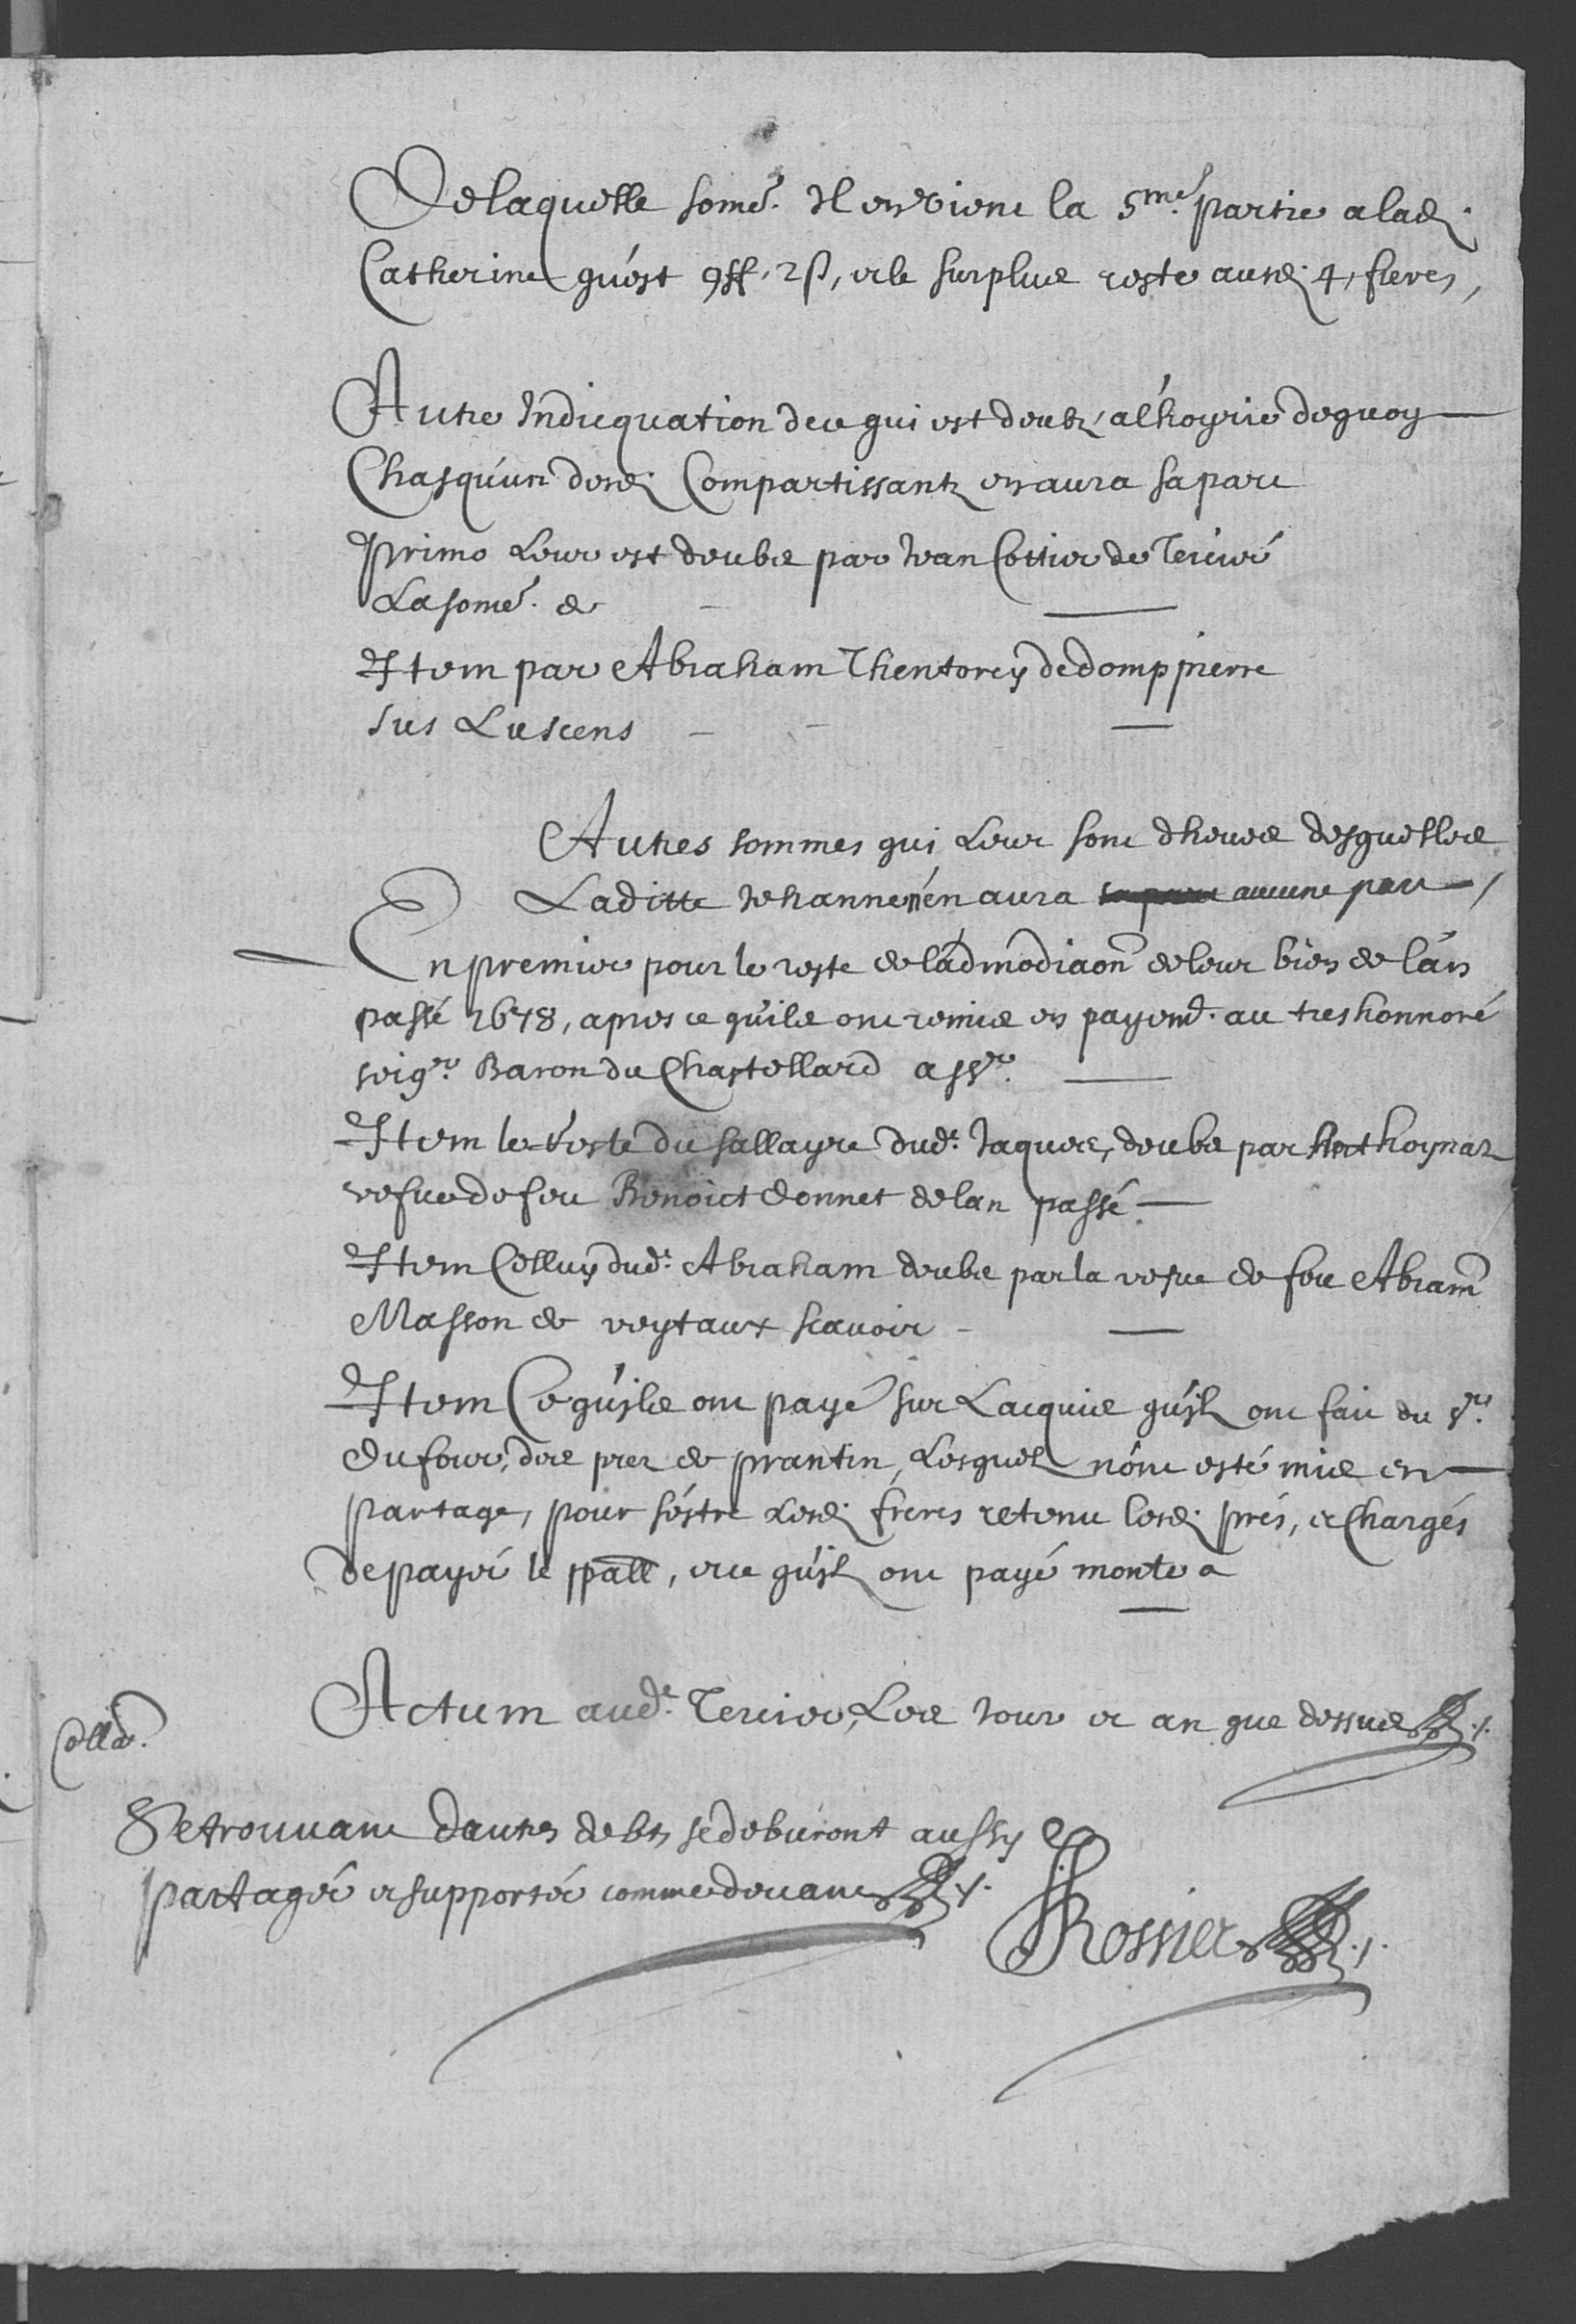 Delaquelle somé. Il en vient la 5me partie a lad.
Catherine qu'est 9ff. 2ß, et le surplus reste ausd. 4, freres,
Autre Indicquation de ce qui est deubz a l'hoyrie de quoy
Chasqu'un desd. Compartissantz en aura sa part
Primo Leur est deubs par Jean Cottier de Tercier
La some. de
Item par Abraham Thentorey de domppierre
sus Luscens
Autres sommes qui Leur sont dheues desquelles
Laditte Jehanne n'en aura sa part aucune part,
En premier pour le reste de l'admodiaon de leur bien de l'an
passé 1678, apres ce qu'ils ont remis en payemt. au tres honnoré
seigr. Baron du Chastellard asscr.
Item le reste du sallayre dudt. Jaques, deubs par Anthoynaz
vefue de feu Benoict donnet de lan passé
Item Celluy dudt. Abraham deubs par la vefue de feu Abram
Masson de veytaux scavoir
Item Ce qu'ils ont payé sur L'acquis qu'ilz ont fait du Sr.
dufour, des prez de prantin, Lesquelz n'ont esté mis en
partage, pour s'estre Lesd. freres retenu lesd. prés, et Chargés
de payer le ppall, et ce qu'ilz ont payé monte a
Actum audt. Tercier, Les Jour et an que dessus
Colla.
Se trouvant dautres debtz se debvront aussy
partager et supporter comme devant
Rossier